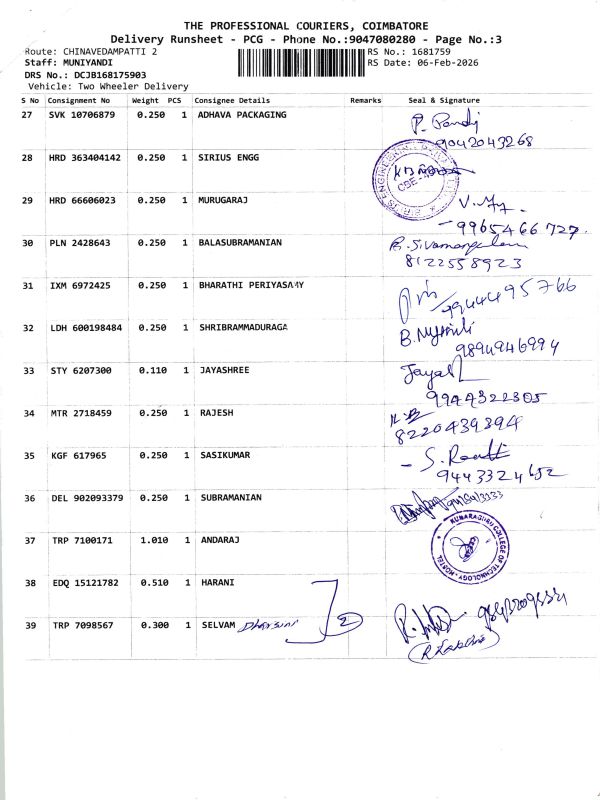 THE PROFESSIONAL COURIERS, COIMBATORE
Delivery Runsheet - PCG - Phone No.:9047080280 - Page No.:3
Route: CHINAVEDAMPATTI 2 RS No.: 1681759
Staff: MUNIYANDI RS Date: 06-Feb-2026
DRS No.: DCJB168175903
Vehicle: Two Wheeler Delivery
S No Consignment No Weight PCS Consignee Details Remarks Seal & Signature
27 SVK 10706879 0.250 1 ADHAVA PACKAGING P. Pandi
9042043268
28 HRD 363404142 0.250 1 SIRIUS ENGG
29 HRD 66606023 0.250 1 MURUGARAJ
9965466727.
30 PLN 2428643 0.250 1 BALASUBRAMANIAN
8122558923
31 IXM 6972425 0.250 1 BHARATHI PERIYASAMY 9944495766
32 LDH 600198484 0.250 1 SHRIBRAMMADURAGA
9894946994
33 STY 6207300 0.110 1 JAYASHREE
9944322305
34 MTR 2718459 0.250 1 RAJESH
8220439394
35 KGF 617965 0.250 1 SASIKUMAR
9443324652
36 DEL 902093379 0.250 1 SUBRAMANIAN
37 TRP 7100171 1.010 1 ANDARAJ KUMARAGURU COLLEGE OF TECHNOLOGY - HOSTEL
38 EDQ 15121782 0.510 1 HARANI
39 TRP 7098567 0.300 1 SELVAM 2